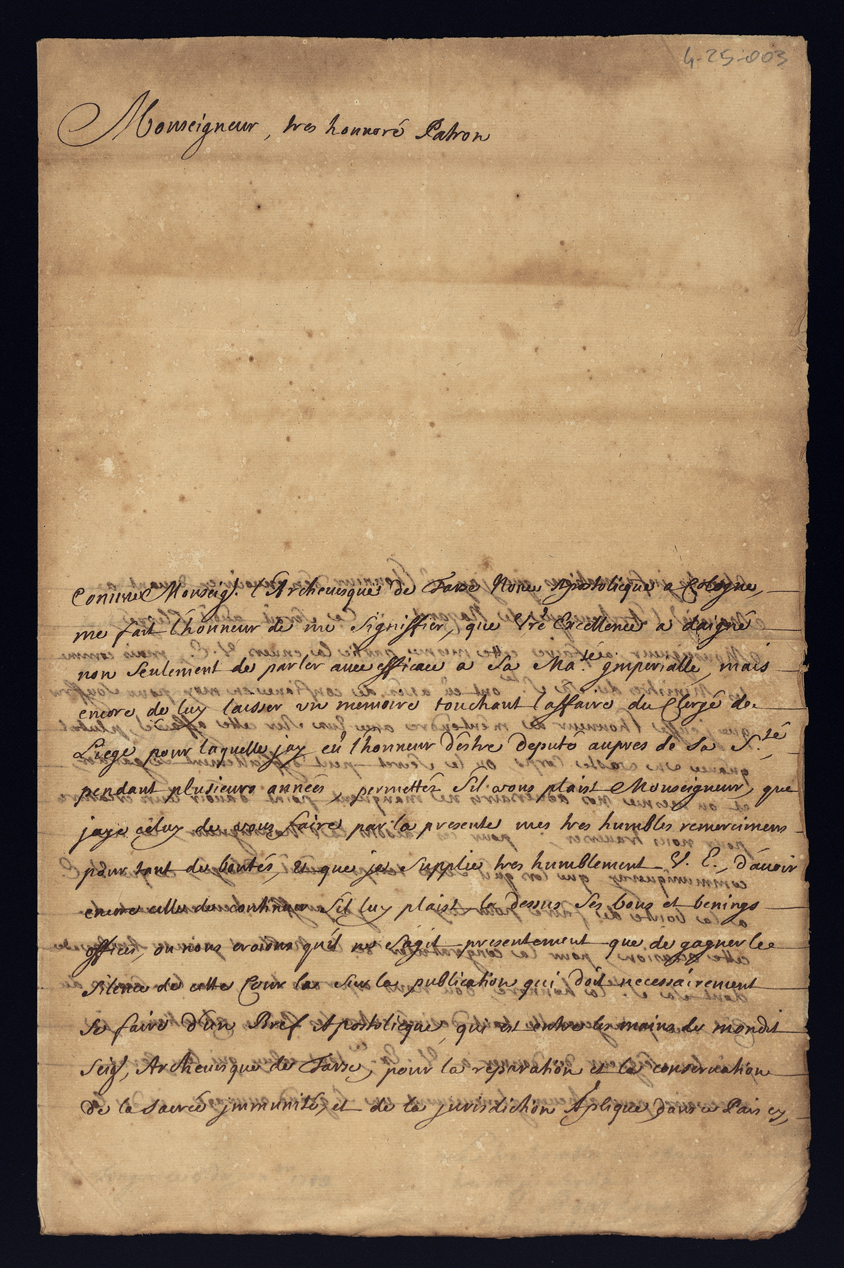 4-25-003
Monseigneur, tres honnoré Patron
Comme Monseigr. l'Archeuesque de Tarse Nonce Apostolicque a Cologne,
me fait l'honneur de me signiffier, que Vre Excellence a daigné
non seulement de parler auec efficace a Sa Maté. jmperialle, mais
encore de luy laisser vn memoire touchant l'affaire du Clergé de
Liege pour laquelle jay eû l'honneur d'estre deputé aupres de sa S.té
pendant plusieurs années, permettés sil vous plaist Monseigneur, que
jaye celuy de vous faire par la presente mes tres humbles remercimens
pour tant de bontés, et que je supplie tres humblement V. E., d'auoir
encore celle de continuer sil luy plaist la dessus ses bons et benings
offices, ou nous croions qu'il ne s'agit presentement que de gagner le
silence de cette Cour la sur la publication qui doit necessairement
se faire d'un Bref Apostolicque, qui est entre les mains de mondit
Seigr, Archeuesque de Tarse, pour la reparation et la conseruation
de la sacrée jmmunité, et de la jurisdiction Aplique, dans ce Pais cy,